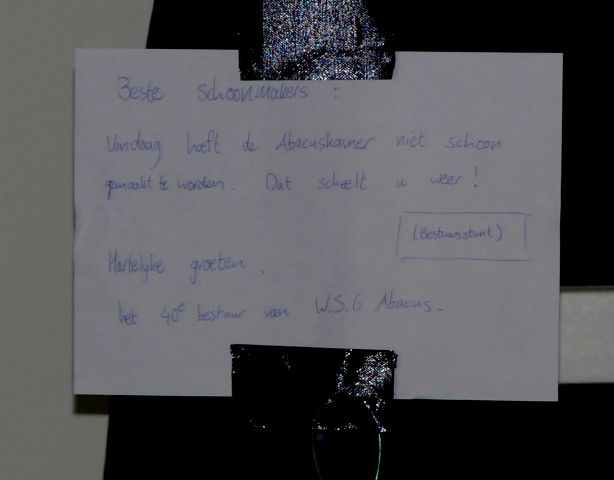 Beste schoonmakers :
Vandaag hoeft de Abacuskamer niet schoon
gemaakt te worden. Dat scheelt u weer!
(Bestuursstunt)
Hartelijke groeten.
het 40e bestuur van W.S.G Abacus.